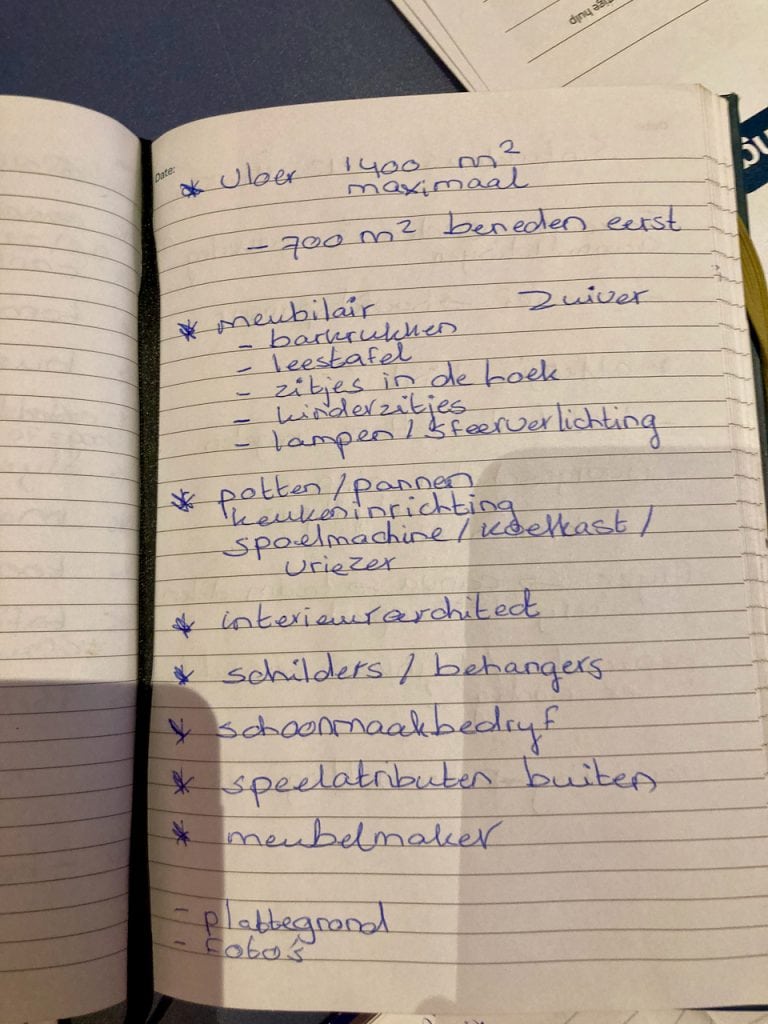 tige hulp
Date:
* vloer 1400 m²
maximaal
- 700 m² beneden eerst
* meubilair Zuiver
- barkrukken
- leestafel
- zitjes in de hoek
- kinderzitjes
- lampen / sfeerverlichting
* potten / pannen
keukeninrichting
spoelmachine / koelkast /
vriezer
* interieurarchitect
* schilders / behangers
* schoonmaakbedryf
* speelatributen buiten
* meubelmaker
- plattegrond
- foto's